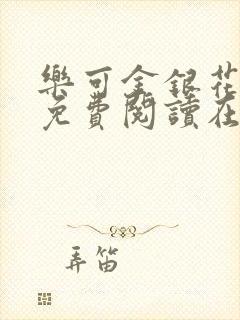 樂可金銀花
免費閱讀在
弄笛